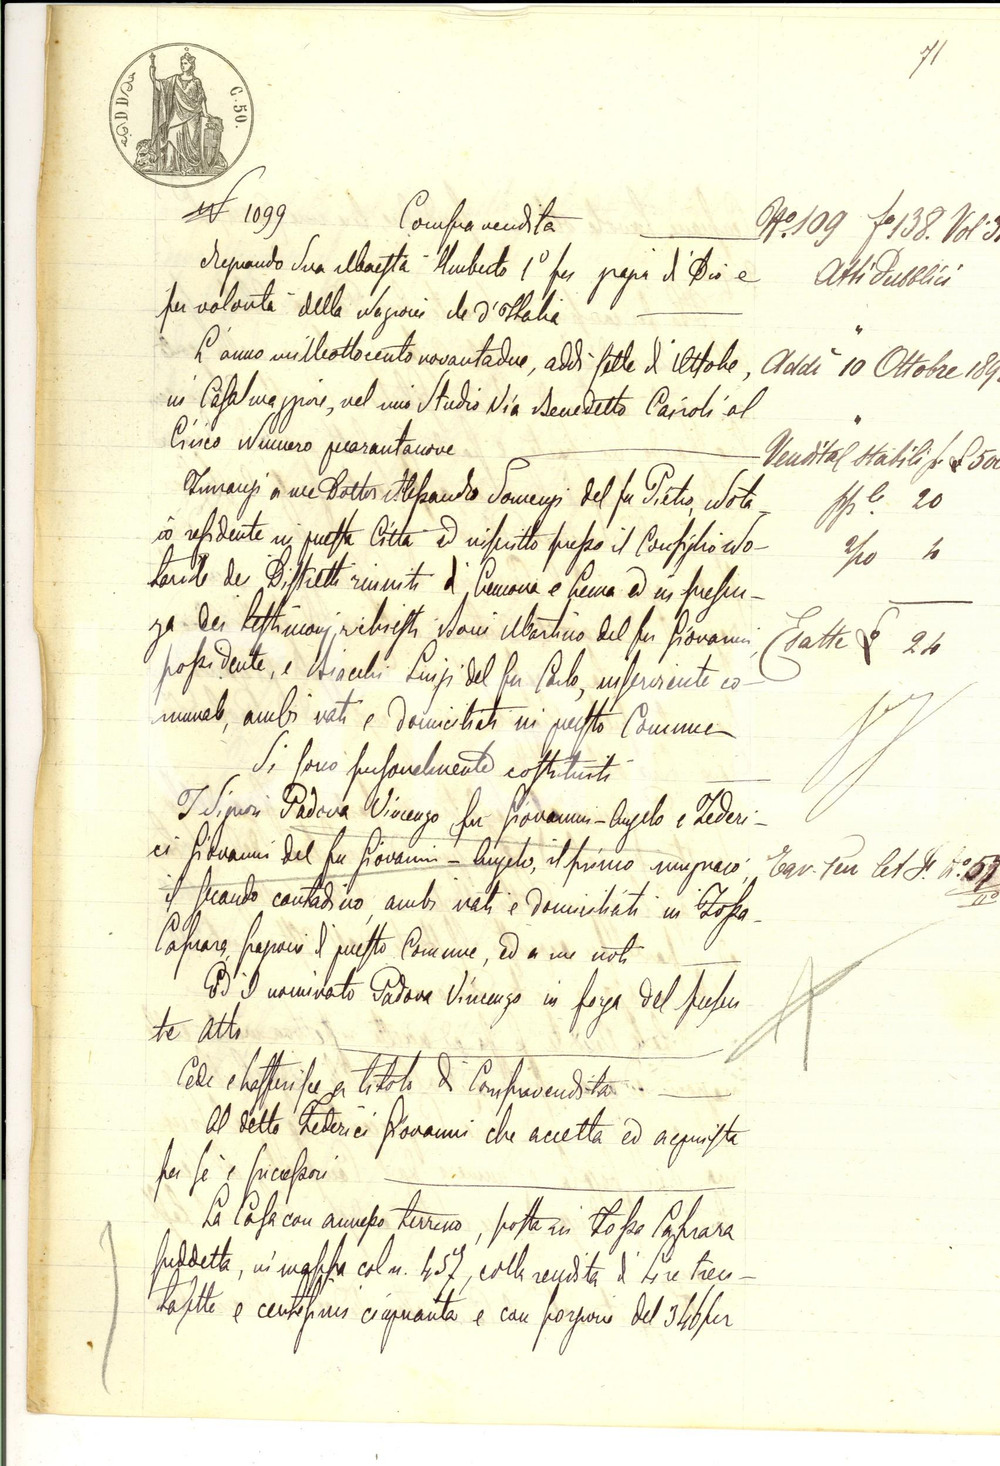 71
C. 50.
N 1099 Compravendita
Regnando Sua Maestà Umberto 1° per grazia di Dio e
per volontà della Nazione Re d'Italia
L'anno milleottocento novantadue, addì sette di Ottobre,
in Casalmaggiore, nel mio Studio Via Benedetto Cairoli al
Civico Numero quarantanove
Innanzi a me Dottor Alessandro Somenzi del fu Pietro, Nota-
io residente in questa Città ed inscritto presso il Consiglio No-
tarile dei Distretti riuniti di Cremona e Crema ed in presen-
za dei testimoni richiesti Martino del fu Giovanni,
possidente, e Luigi del fu Carlo, inserviente co-
munale, ambi nati e domiciliati in questo Comune
Si sono personalmente costituiti
I Signori Padova Vincenzo fu Giovanni-Angelo e Federi-
ci Giovanni del fu Giovanni-Angelo, il primo mugnaio,
il secondo contadino, ambi nati e domiciliati in Fossa-
Caprara, frazione di questo Comune, ed a me noti
Ed il nominato Padova Vincenzo in forza del presen-
te atto
Cede e trasferisce a titolo di Compravendita
Al detto Federici Giovanni che accetta ed acquista
per sè e successori
La Casa con annesso terreno, posta in Fossa Caprara
suddetta, in mappa col n. 457, colla rendita di Lire tren-
tasette e centesimi cinquanta e con porzione del 346 per
N°. 109 f° 138. Vol. 3
Atti Pubblici
Addì 10 Ottobre 189
Vendita Stabili p. £ 500
20
4
Esatte £ 24
57